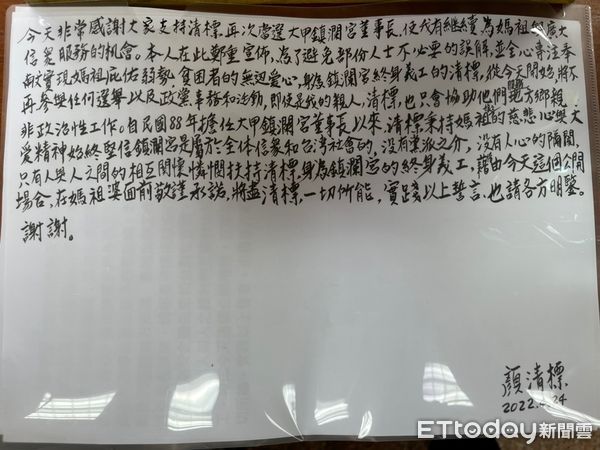 今天非常感謝大家支持清標,再次當選大甲鎮瀾宮董事長,使我有繼續為媽祖與廣大
信眾服務的機會。本人在此鄭重宣佈,為了避免部份人士不必要的誤解,並全心專注奉
獻實現媽祖庇佑弱勢、貧困者的無邊愛心,身為鎮瀾宮終身義工的清標,從今天開始,將不
再參與任何選舉以及政黨事務和活動,即使是我的親人,清標,也只會協助他們地方鄉親
非政治性工作。自民國88年擔任大甲鎮瀾宮董事長以來,清標秉持媽祖的慈悲心與大
愛精神,始終堅信鎮瀾宮是屬於全体信眾和台灣社會的,沒有黨派之分,沒有人心的隔閡,
只有人與人之間的相互關懷憐憫扶持清標,身為鎮瀾宮的終身義工,藉由今天這個公開
場合,在媽祖婆面前敬謹承諾,將盡清標,一切所能,實踐以上誓言,也請各方明鑒。
謝謝。
顏清標
2022. 24
ETtoday新聞雲